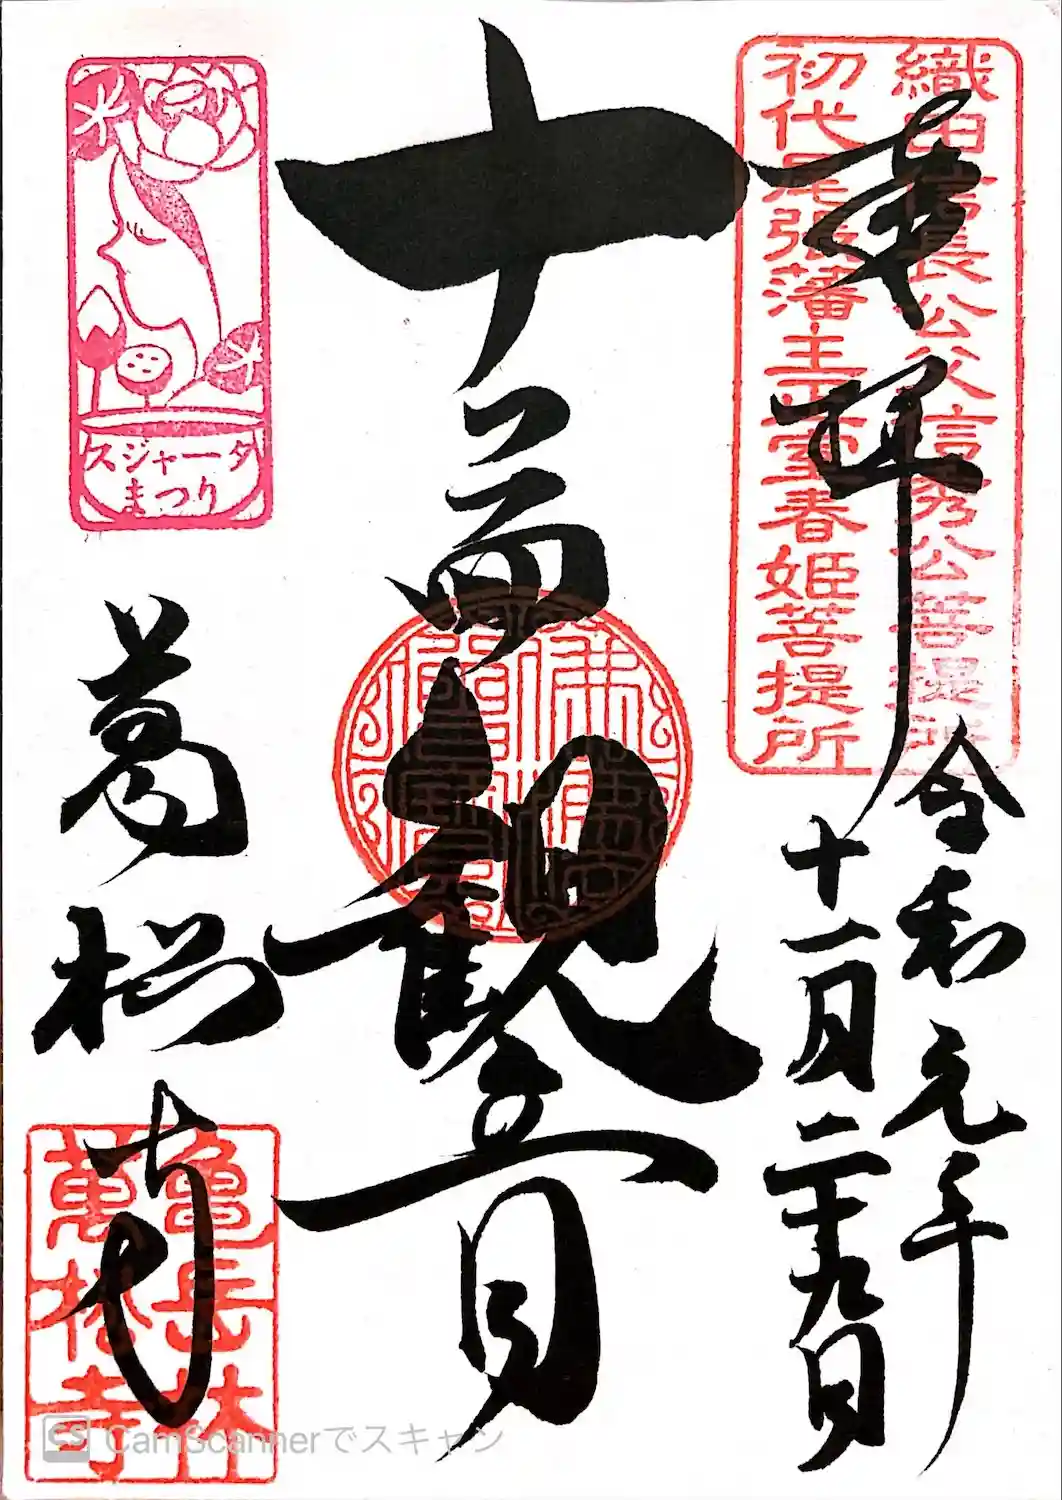 奉拝
織田信長公父信秀公菩提所
初代尾張藩主正室春姫菩提所
令和元年
十一月二十九日
十一面観世音
萬松寺
亀岳林
萬松寺
スジャータ
まつり
CamScannerでスキャン